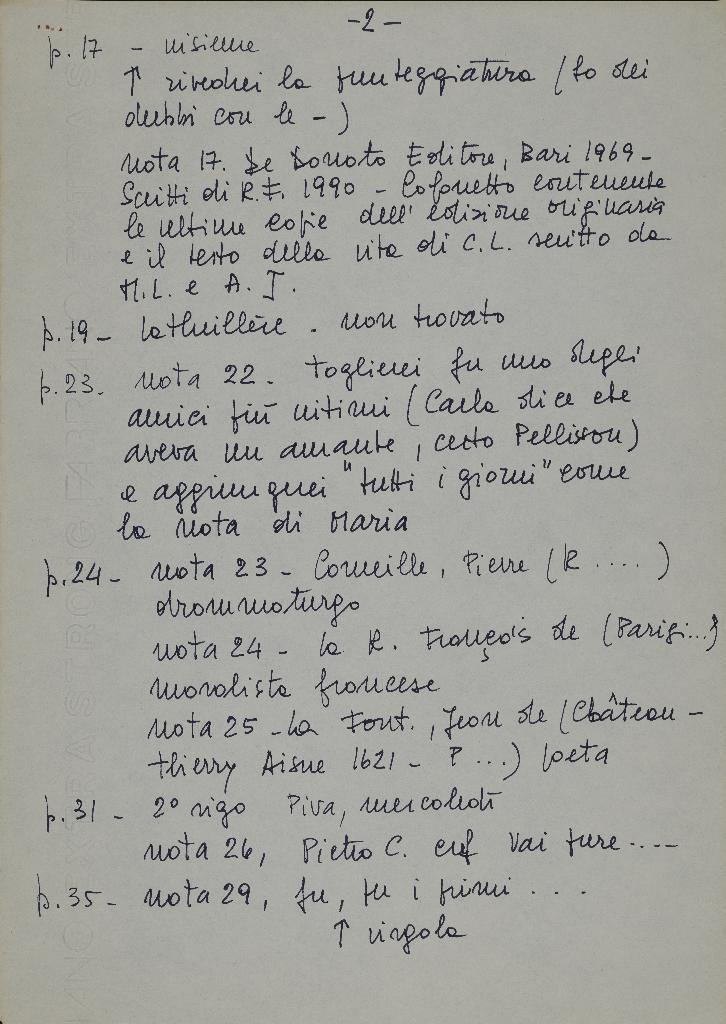 - 2 -
p. 17 - insieme
↑ rivedrei la punteggiatura (Io dei
dubbi con le -)
nota 17. De Donato Editore, Bari 1969 -
Scritti di R.F. 1990 - Cofanetto contenente
le ultime copie dell'edizione originaria
e il testo della vita di C.L. scritto da
M.L. e A. J.
p. 19 - Lathuillère . non trovato
p. 23. nota 22 - toglierei fu uno degli
amici più intimi (Carla dice che
aveva un amante, certo Pellisson)
e aggiungerei "tutti i giorni" come
la nota di Maria
p. 24 - nota 23 - Corneille, Pierre (R ....)
drammaturgo
nota 24 - la R. François de (Parigi...)
moralista francese
nota 25 - La Font., Jean de (Château -
Thierry Aisne 1621 - P ...) poeta
p. 31 - 2° rigo Piva, mercoledì
nota 26, Pietro C. Vai pure ....
p. 35 - nota 29, fu, tu i primi ....
↑ virgola